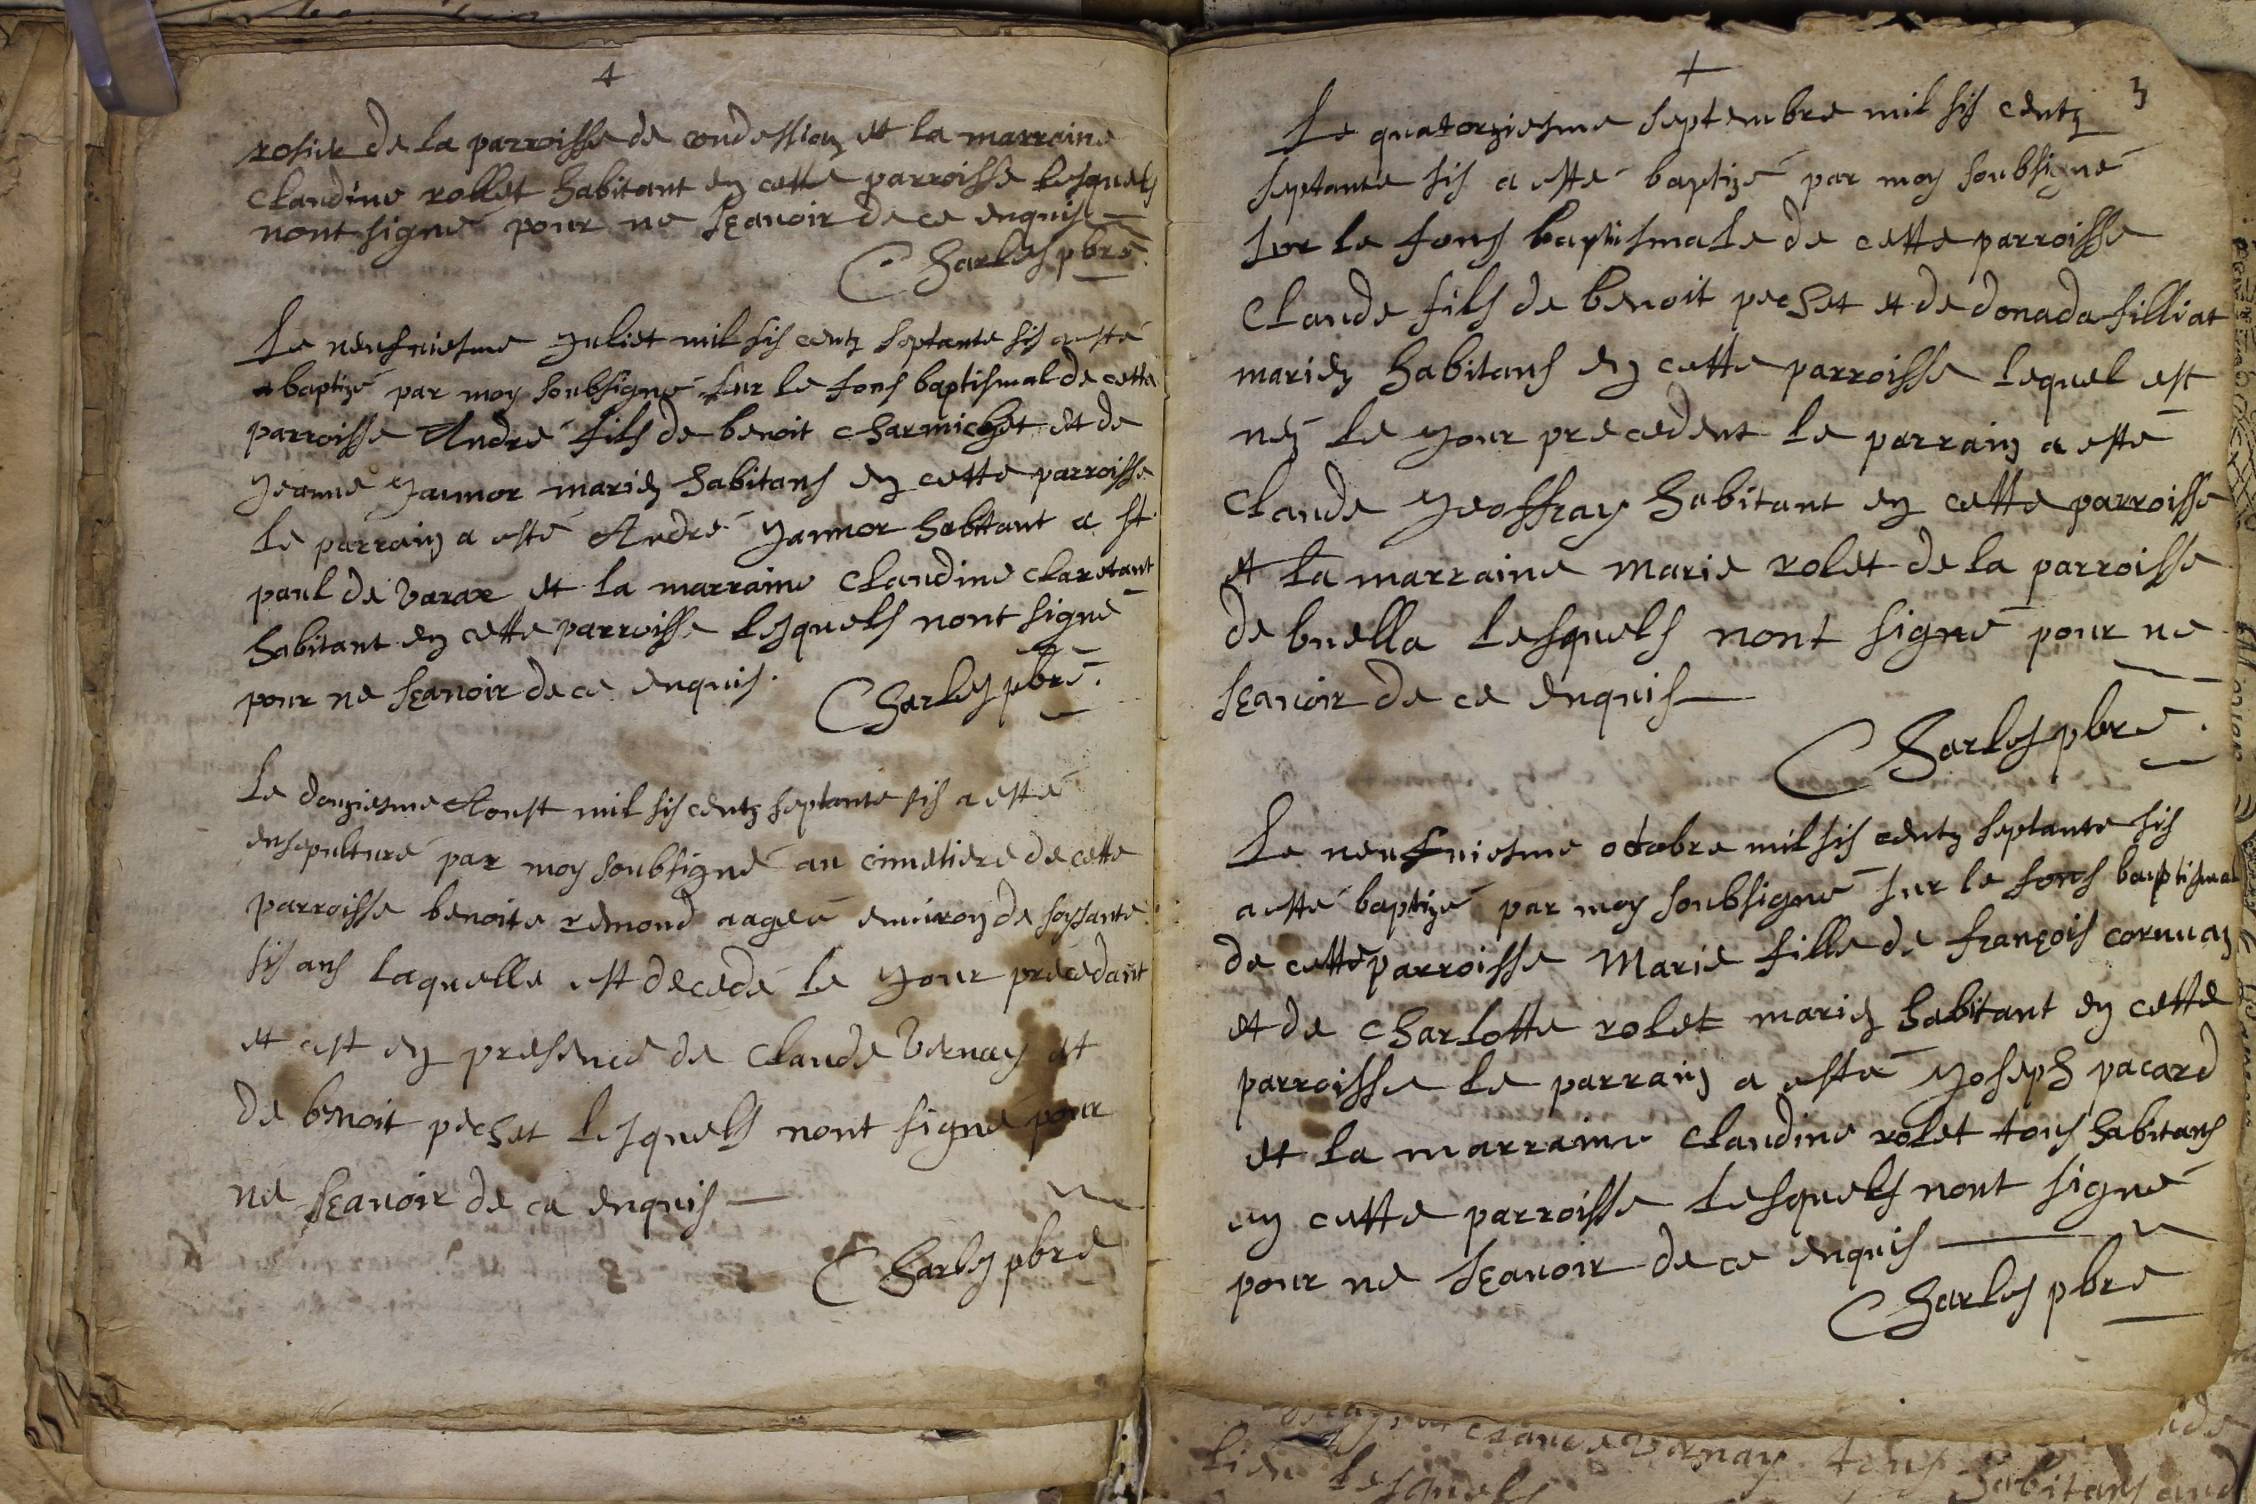 rosier de la parroisse de condession et la marraine
Claudine rollet habitant en cette parroisse lesquels
nont signé pour ne sçavoir de ce enquis
Charles pbre
Le neufviesme Juliet mil sis centz septante sis a esté
baptizé par moy soubsigné sur le fons baptismal de cette
parroisse André fils de benoit charmichet et de
Jeanne Jannor mariez habitans en cette parroisse
le parrain a esté André Jannor habitant a st
paul de varax et la marraine Claudine Claretant
habitant en cette parroisse lesquels nont signé
pour ne sçavoir de ce enquis.
Charles pbre.
Le douziesme Aoust mil sis centz septante sis a esté
ensepulturé par moy soubsigné au cimetiere de cette
parroisse benoite remond aageé environ de soyssante
sis ans laquelle est decedé le Jour precedant
et cest en presence de Claude Vernay et
de benoit pechet lesquels nont signé pour
ne sçavoir de ce enquis
Charles pbre
3
Le quatorziesme septembre mil sis centz
septante sis a esté baptizé par moy soubsigné
sur le fons baptismale de cette parroisse
Claude fils de benoit pechet et de donada filliat
mariez habitans en cette parroisse lequel est
nez le Jour precedent le parrain a esté
Claude Jeoffray habitant en cette parroisse
et la marraine marie rolet de la parroisse
de buella lesquels nont signé pour ne
sçavoir de ce enquis
Charles pbre.
Le neufviesme octobre mil sis centz septante sis
a esté baptizé par moy soubsigné sur le fons baptismal
de cette parroisse Marie fille de françois cornuaz
et de Charlotte rolet mariez habitant en cette
parroisse le parrain a esté Joseph pacard
et la marraine Claudine rolet tous habitans
en cette parroisse lesquels nont signé
pour ne sçavoir de ce enquis
Charles pbre
Claude Vernay tous
lieu lesquels habitans